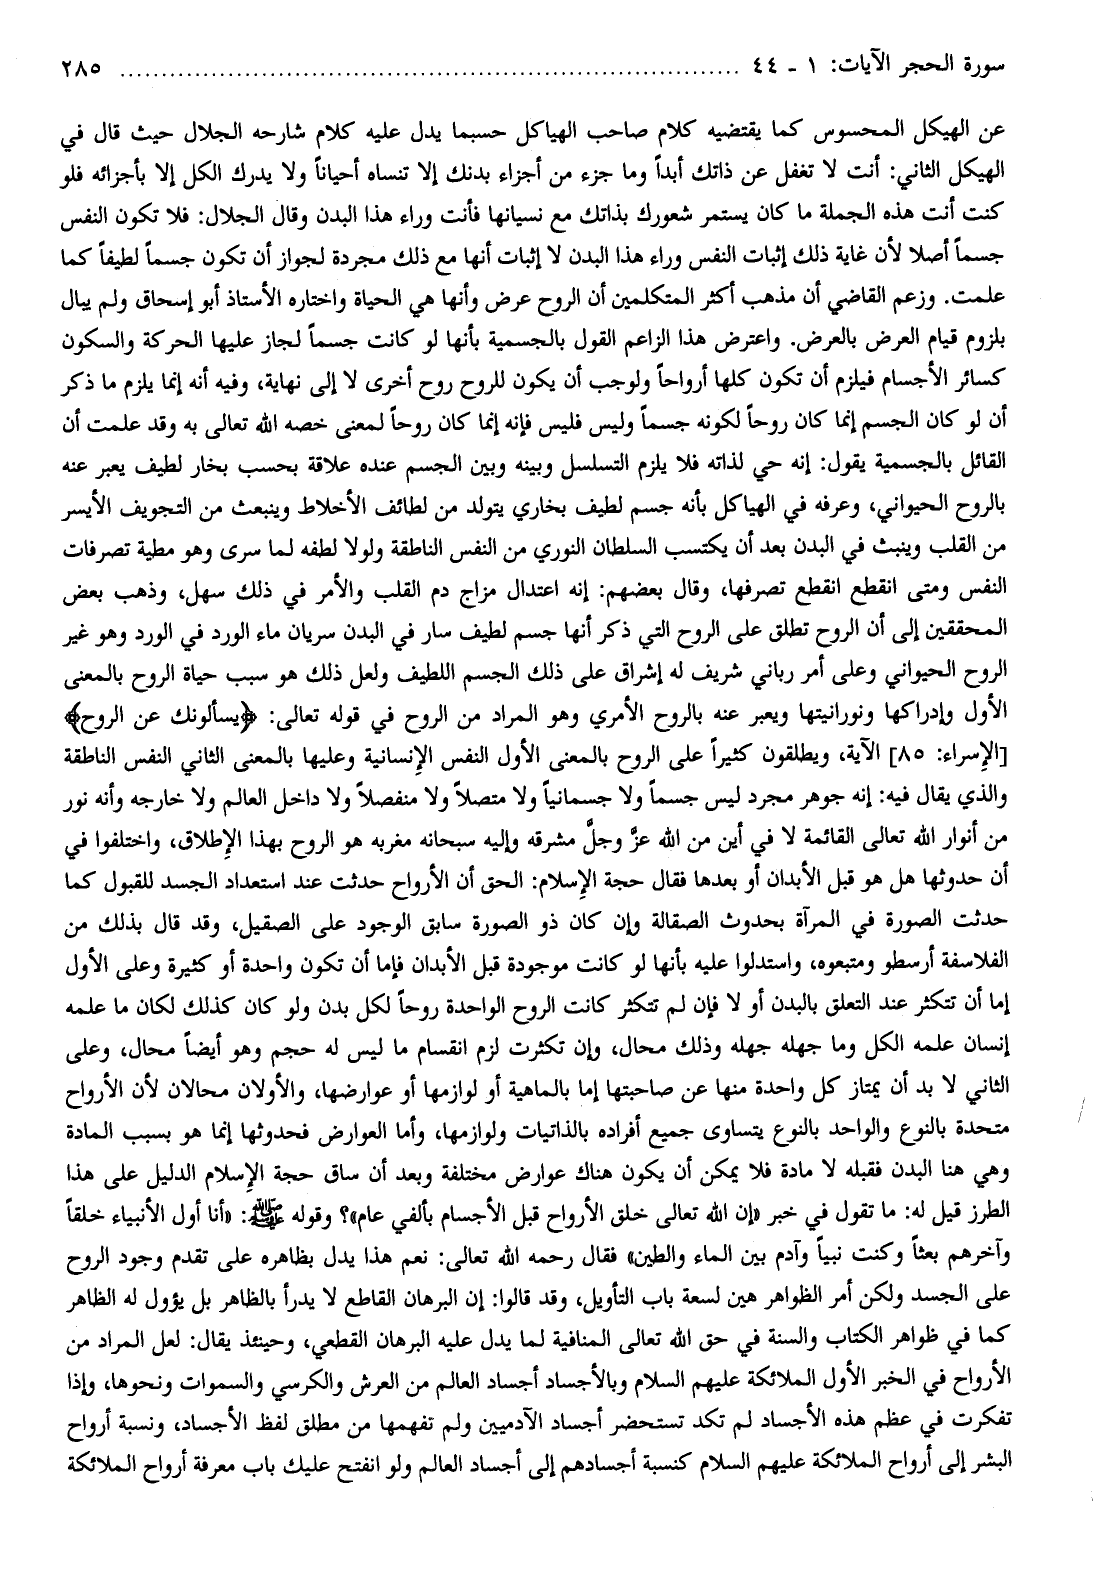 سورة الحجر الآيات: ١ - ٤٤ ........................................................................... ٢٨٥
عن الهيكل المحسوس كما يقتضيه كلام صاحب الهياكل حسبما يدل عليه كلام شارحه الجلال حيث قال في
الهيكل الثاني: أنت لا تغفل عن ذاتك أبداً وما جزء من أجزاء بدنك إلا تنساه أحياناً ولا يدرك الكل إلا بأجزائه فلو
كنت أنت هذه الجملة ما كان يستمر شعورك بذاتك مع نسيانها فأنت وراء هذا البدن وقال الجلال: فلا تكون النفس
جسماً أصلا لأن غاية ذلك إثبات النفس وراء هذا البدن لا إثبات أنها مع ذلك مجردة لجواز أن تكون جسماً لطيفاً كما
علمت. وزعم القاضي أن مذهب أكثر المتكلمين أن الروح عرض وأنها هي الحياة واختاره الأستاذ أبو إسحاق ولم يبال
بلزوم قيام العرض بالعرض. واعترض هذا الزاعم القول بالجسمية بأنها لو كانت جسماً لجاز عليها الحركة والسكون
كسائر الأجسام فيلزم أن تكون كلها أرواحاً ولوجب أن يكون للروح روح أخرى لا إلى نهاية، وفيه أنه إنما يلزم ما ذكر
أن لو كان الجسم إنما كان روحاً لكونه جسماً وليس فليس فإنه إنما كان روحاً لمعنى خصه الله تعالى به وقد علمت أن
القائل بالجسمية يقول: إنه حي لذاته فلا يلزم التسلسل وبينه وبين الجسم عنده علاقة بحسب بخار لطيف يعبر عنه
بالروح الحيواني، وعرفه في الهياكل بأنه جسم لطيف بخاري يتولد من لطائف الأخلاط وينبعث من التجويف الأيسر
من القلب وينبث في البدن بعد أن يكتسب السلطان النوري من النفس الناطقة ولولا لطفه لما سرى وهو مطية تصرفات
النفس ومتى انقطع انقطع تصرفها، وقال بعضهم: إنه اعتدال مزاج دم القلب والأمر في ذلك سهل، وذهب بعض
المحققين إلى أن الروح تطلق على الروح التي ذكر أنها جسم لطيف سار في البدن سريان ماء الورد في الورد وهو غير
الروح الحيواني وعلى أمر رباني شريف له إشراق على ذلك الجسم اللطيف ولعل ذلك هو سبب حياة الروح بالمعنى
الأول وإدراكها ونورانيتها ويعبر عنه بالروح الأمري وهو المراد من الروح في قوله تعالى: ﴿يسألونك عن الروح﴾
[الإسراء: ٨٥] الآية، ويطلقون كثيراً على الروح بالمعنى الأول النفس الإنسانية وعليها بالمعنى الثاني النفس الناطقة
والذي يقال فيه: إنه جوهر مجرد ليس جسماً ولا جسمانياً ولا متصلاً ولا منفصلاً ولا داخل العالم ولا خارجه وأنه نور
من أنوار الله تعالى القائمة لا في أين من الله عزَّ وجلَّ مشرقه وإليه سبحانه مغربه هو الروح بهذا الإطلاق، واختلفوا في
أن حدوثها هل هو قبل الأبدان أو بعدها فقال حجة الإسلام: الحق أن الأرواح حدثت عند استعداد الجسد للقبول كما
حدثت الصورة في المرآة بحدوث الصقالة وإن كان ذو الصورة سابق الوجود على الصقيل، وقد قال بذلك من
الفلاسفة أرسطو ومتبعوه، واستدلوا عليه بأنها لو كانت موجودة قبل الأبدان فإما أن تكون واحدة أو كثيرة وعلى الأول
إما أن تتكثر عند التعلق بالبدن أو لا فإن لم تتكثر كانت الروح الواحدة روحاً لكل بدن ولو كان كذلك لكان ما علمه
إنسان علمه الكل وما جهله جهله وذلك محال، وإن تكثرت لزم انقسام ما ليس له حجم وهو أيضاً محال، وعلى
الثاني لا بد أن يمتاز كل واحدة منها عن صاحبتها إما بالماهية أو لوازمها أو عوارضها، والأولان محالان لأن الأرواح
متحدة بالنوع والواحد بالنوع يتساوى جميع أفراده بالذاتيات ولوازمها، وأما العوارض فحدوثها إنما هو بسبب المادة
وهي هنا البدن فقبله لا مادة فلا يمكن أن يكون هناك عوارض مختلفة وبعد أن ساق حجة الإسلام الدليل على هذا
الطرز قيل له: ما تقول في خبر «إن الله تعالى خلق الأرواح قبل الأجسام بألفي عام»؟ وقوله ﷺ: «أنا أول الأنبياء خلقاً
وآخرهم بعثاً وكنت نبياً وآدم بين الماء والطين» فقال رحمه الله تعالى: نعم هذا يدل بظاهره على تقدم وجود الروح
على الجسد ولكن أمر الظواهر هين لسعة باب التأويل، وقد قالوا: إن البرهان القاطع لا يدرأ بالظاهر بل يؤول له الظاهر
كما في ظواهر الكتاب والسنة في حق الله تعالى المنافية لما يدل عليه البرهان القطعي، وحينئذ يقال: لعل المراد من
الأرواح في الخبر الأول الملائكة عليهم السلام وبالأجساد أجساد العالم من العرش والكرسي والسموات ونحوها، وإذا
تفكرت في عظم هذه الأجساد لم تكد تستحضر أجساد الآدميين ولم تفهمها من مطلق لفظ الأجساد، ونسبة أرواح
البشر إلى أرواح الملائكة عليهم السلام كنسبة أجسادهم إلى أجساد العالم ولو انفتح عليك باب معرفة أرواح الملائكة